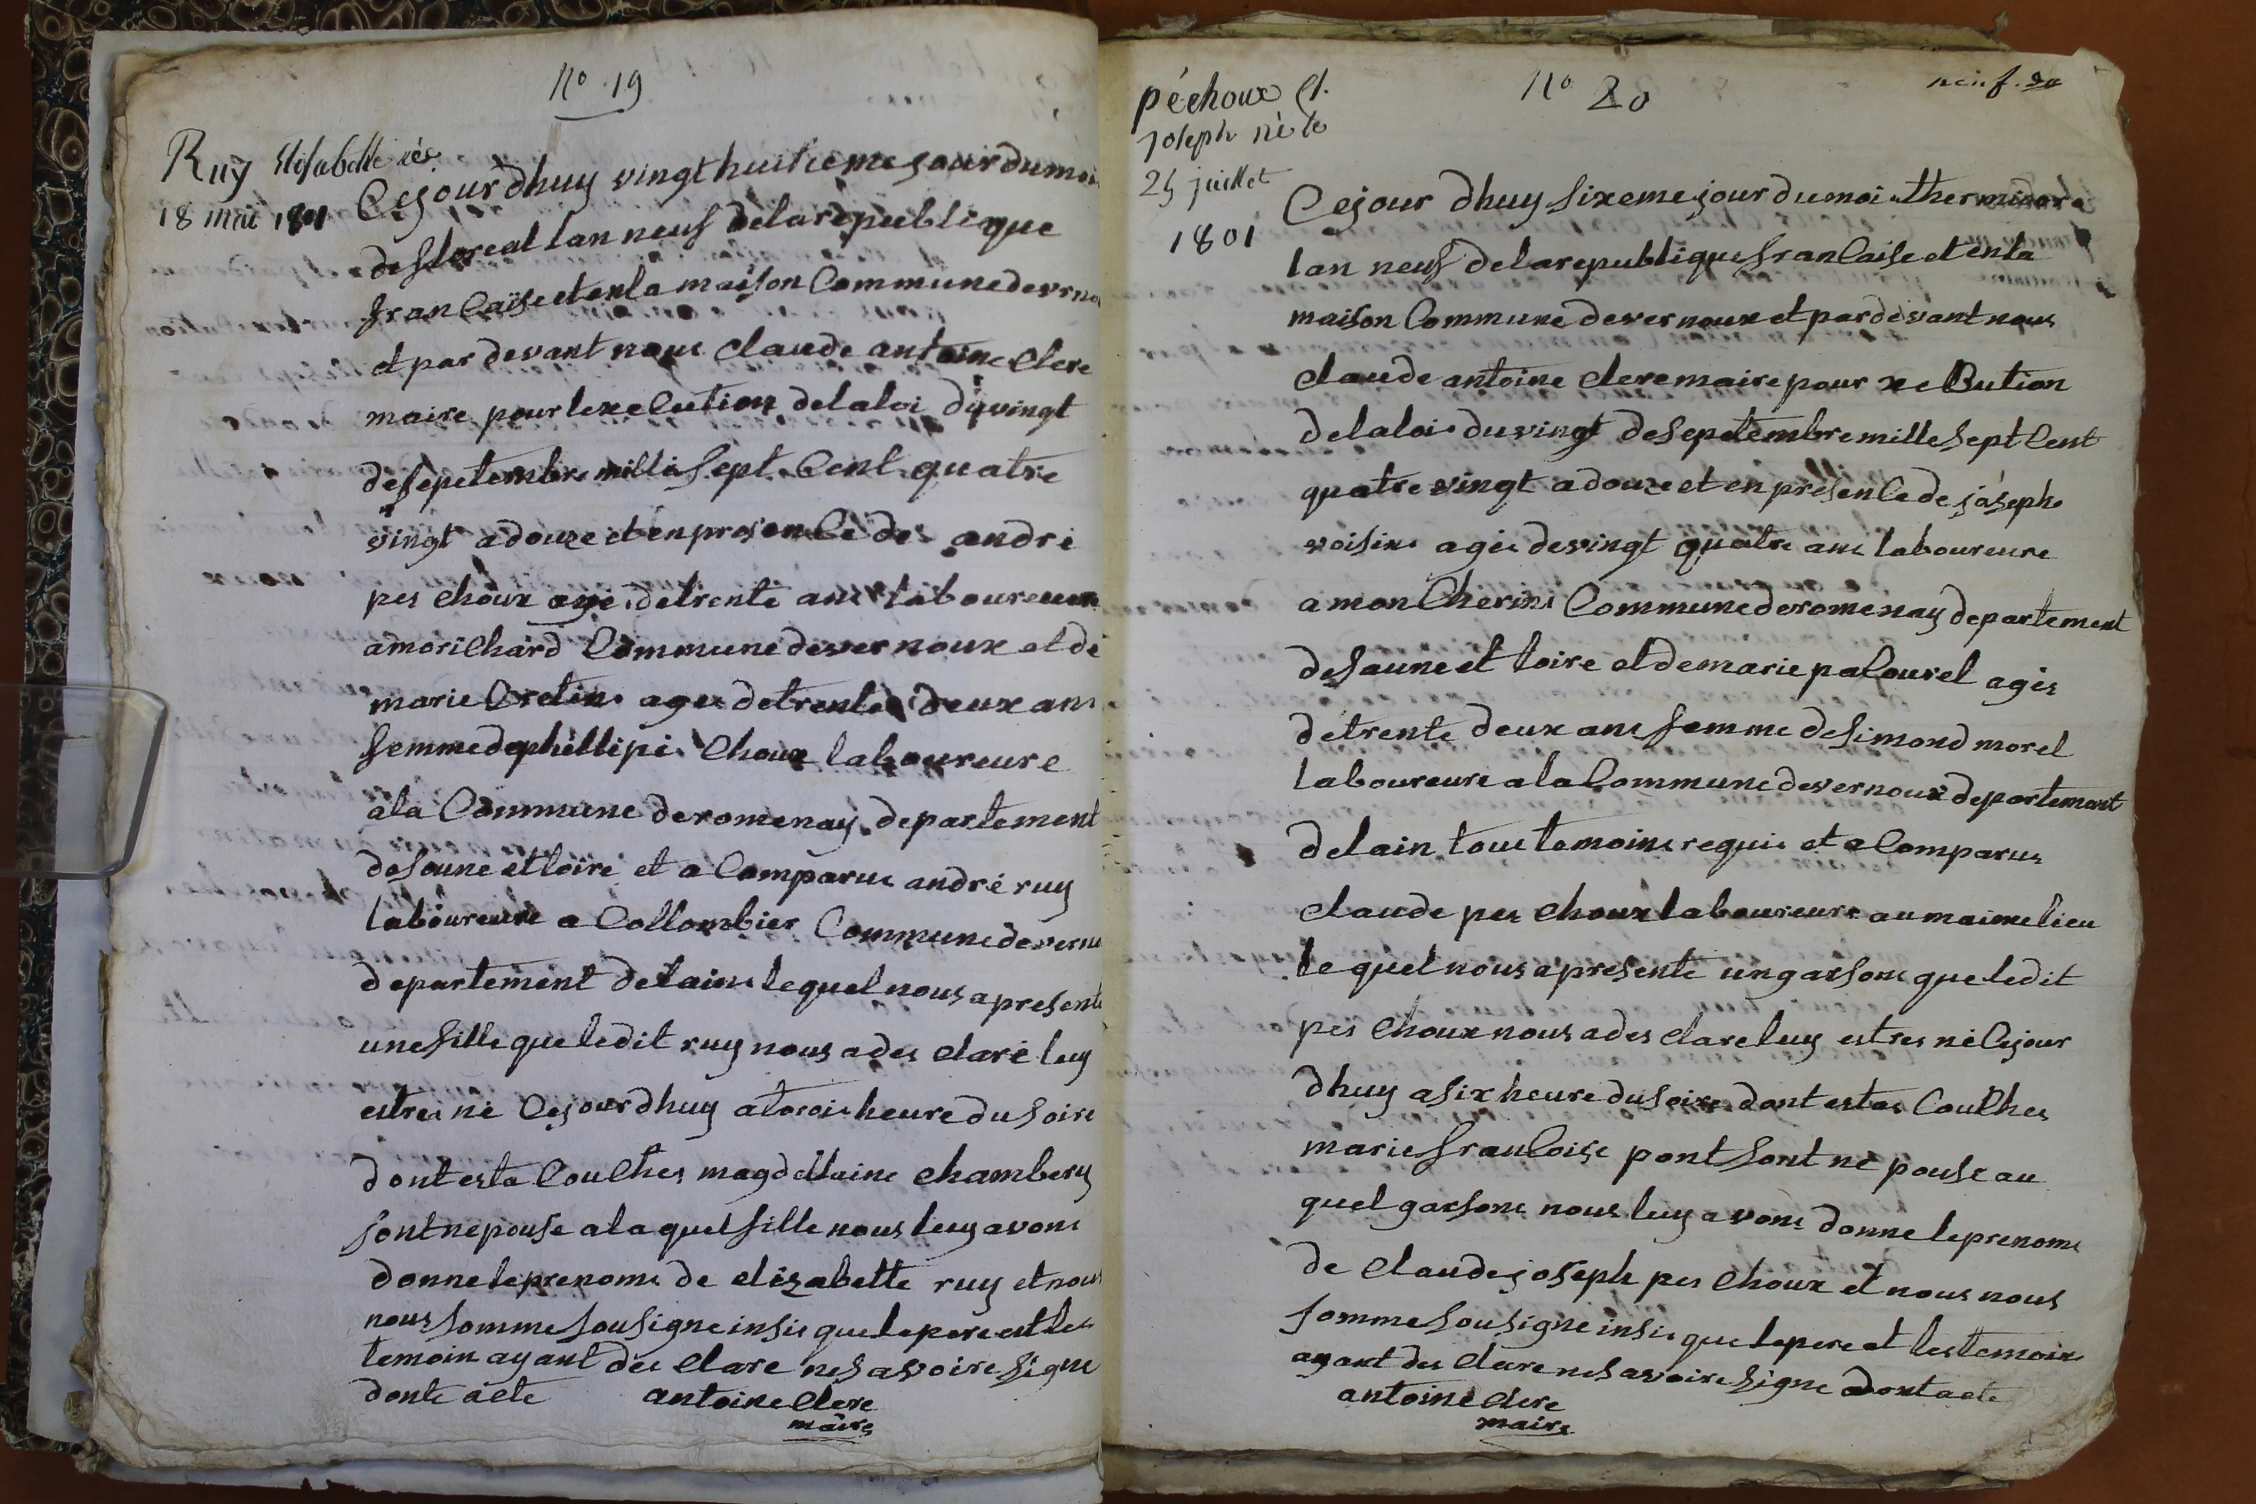 No. 19
Ruy Elisabette née
18 mai 1801
Cejour dhuy vingt huitieme jour du moi
de floreal lan neuf delarepublique
francaise et enla maison Commune de verno
et par devant nous claude antoine Clere
maire pour lexecution delaloi du vingt
de sepetembre mille sept Cent quatre
vingt a douze et en presence de andre
pes choux agé de trente ans laboureure
a morichard Commune de vernoux et de
marie Cretin agee de trente deux ans
femme de phillipe Choux laboureure
ala Commune deromenay departement
de saune et loire et a Comparus andré ruy
laboureure a Collombier Commune de vernou
departement delain lequel nous a presenté
une fille que ledit ruy nous a des claré luy
estres né Cejourdhuy a trois heure du soire
dont esta Couches magdellaine chambery
sont nepouse ala quel fille nous luy avons
donne le prenoms de elizabette ruy et nous
nous somme sousigne insi que le pere et les
temoin ayant des clare ne savoire signe
dont acte antoine Clere
maire
péchoux Cl.
Joseph né le
25 juillet
1801
No 20
neuf.
Cejour dhuy sixeme jour du moi thermidor
lan neuf delarepublique francaise et enla
maison Commune de vernoux et par devant nous
claude antoine clere maire pour xecution
delaloi du vingt de sepetembre mille sept Cent
quatre vingt a douze et en presence de joseph
voisin agée de vingt quatre ans laboureure
a moncherin Commune deromenay departement
de saune et loire et de marie pacourel agés
de trente deux ans femme de simond morel
laboureure ala Commune de vernoux departement
delain tous temoins requis et a Comparus
claude pes choux laboureure au maime lieu
le quel nous a presenté un garsons que ledit
pes choux nous a des clare luy estres né Cejour
dhuy a six heure du soire dont estes Couches
marie francoise pont sont né pouse au
quel garsons nous luy avons donne le prenoms
de claude joseph pes choux et nous nous
somme sousigne insi que le pere et les temoin
ayant des clare ne savoire signe dont acte
antoine clere
maire